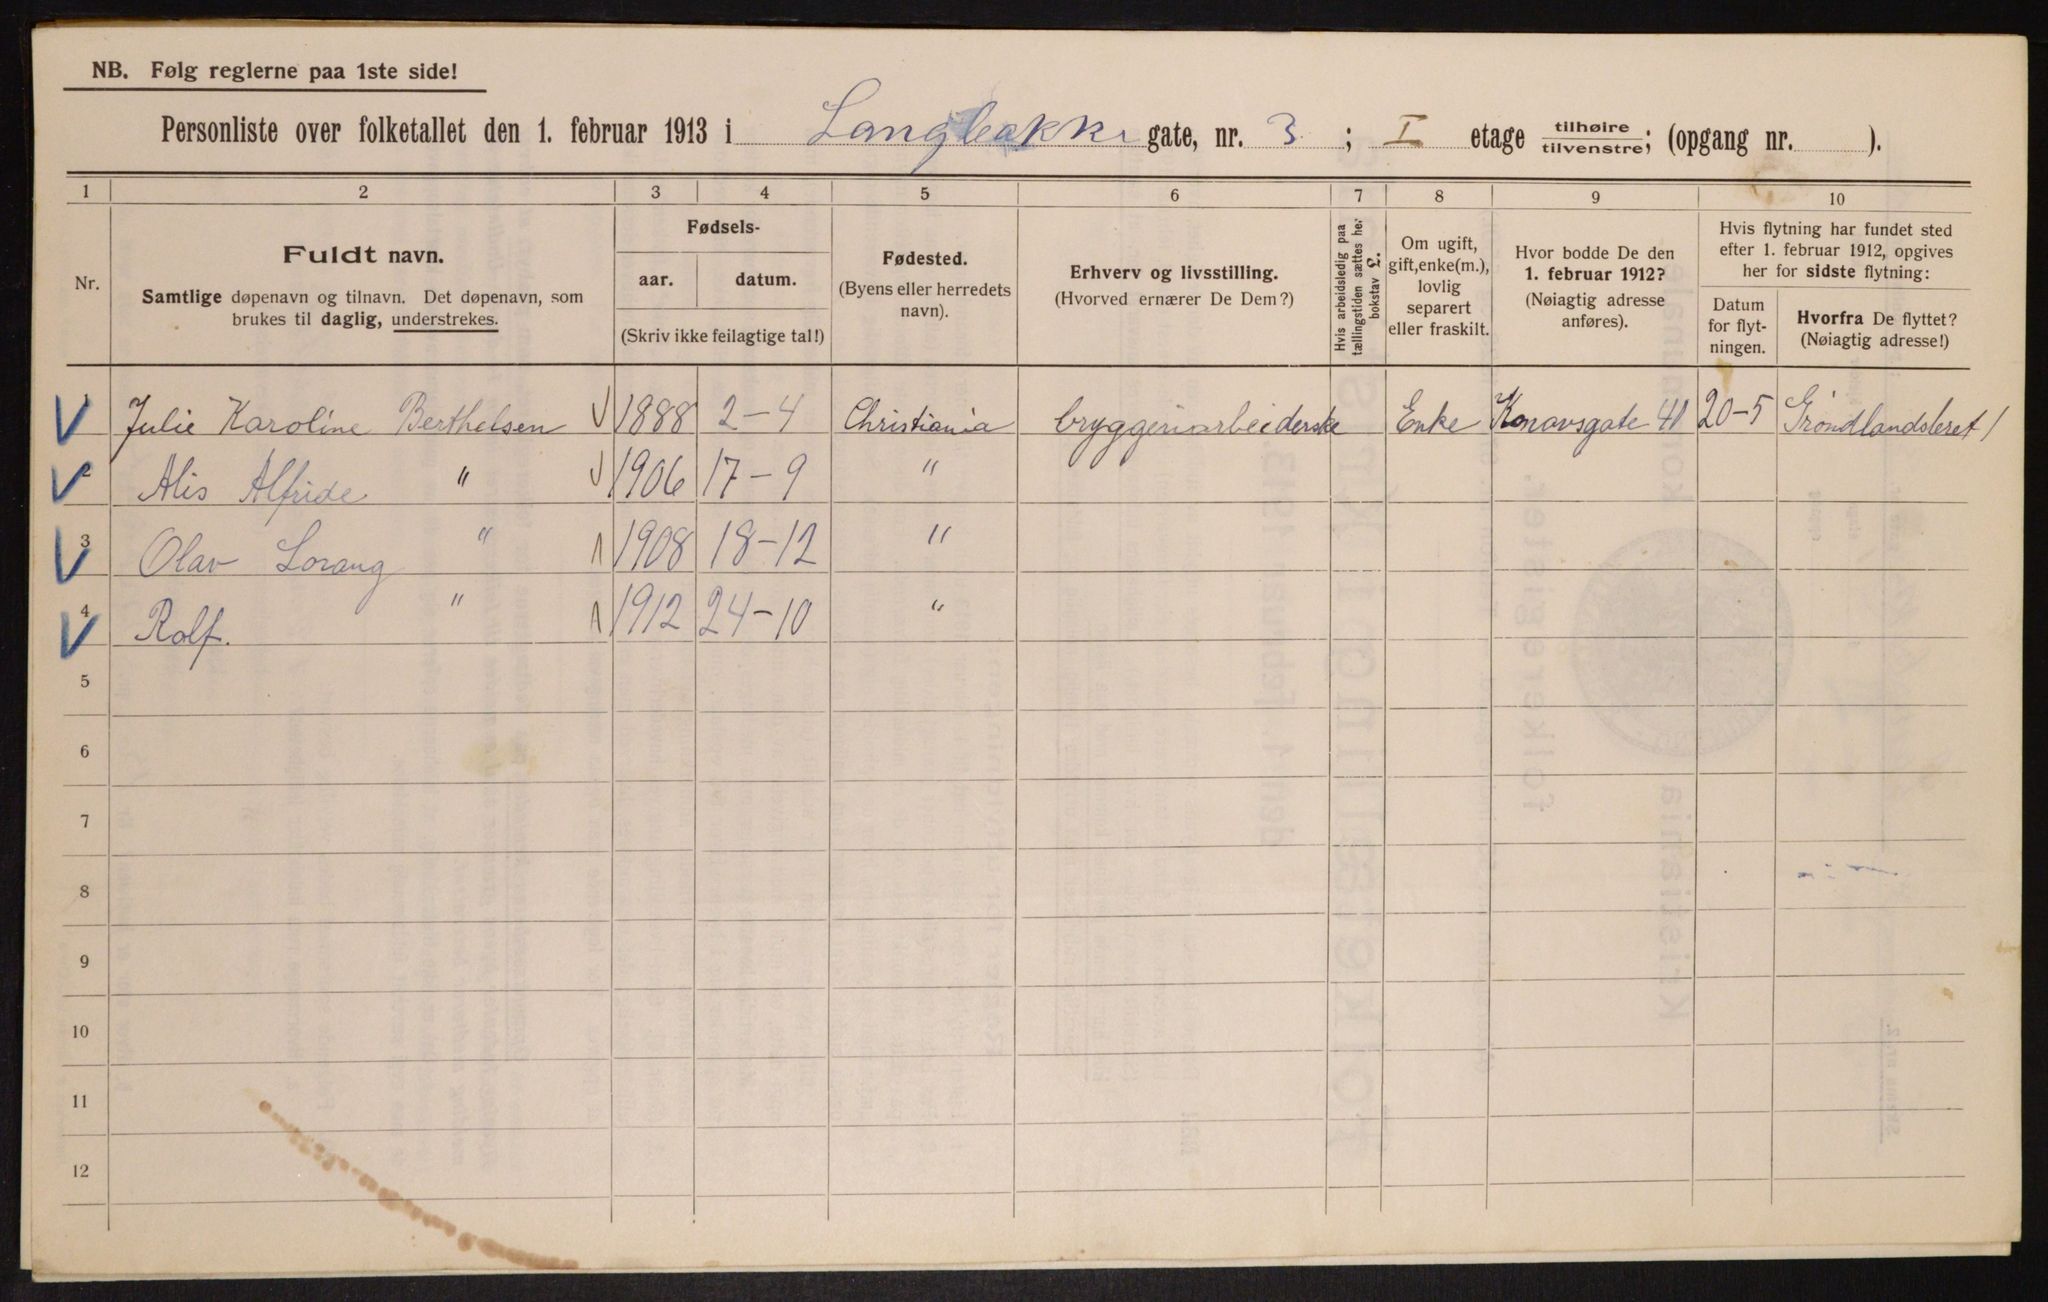 NB. Følg reglerne paa 1ste side!
Personliste over folketallet den 1. februar 1913 i Langbakke gate, nr. 3 ; I etage tilhøire tilvenstre; (opgang nr. ).
1 2 3 4 5 6 7 8 9 10
Nr.
Fuldt navn.
Samtlige døpenavn og tilnavn. Det døpenavn, som
brukes til daglig, understrekes.
Fødsels-
aar. datum.
(Skriv ikke feilagtige tal!)
Fødested.
(Byens eller herredets
navn).
Erhverv og livsstilling.
(Hvorved ernærer De Dem?)
Hvis arbeidsledig paa
tællingstiden sættes her
bokstav L.
Om ugift,
gift, enke(m.),
lovlig
separert
eller fraskilt.
Hvor bodde De den
1. februar 1912?
(Nøiagtig adresse
anføres).
Hvis flytning har fundet sted
efter 1. februar 1912, opgives
her for sidste flytning:
Datum
for flyt-
ningen.
Hvorfra De flyttet?
(Nøiagtig adresse!)
1 Julie Karoline Berthelsen 1888 2-4 Christiania bryggeriarbeiderske Enke 41 20-5 Grøndlandsleret 1
2 Alis Alfride " 1906 17-9 "
3 Olav Lorang " 1908 18-12 "
4 Rolf. " 1912 24-10 "
5
6
7
8
9
10
11
12